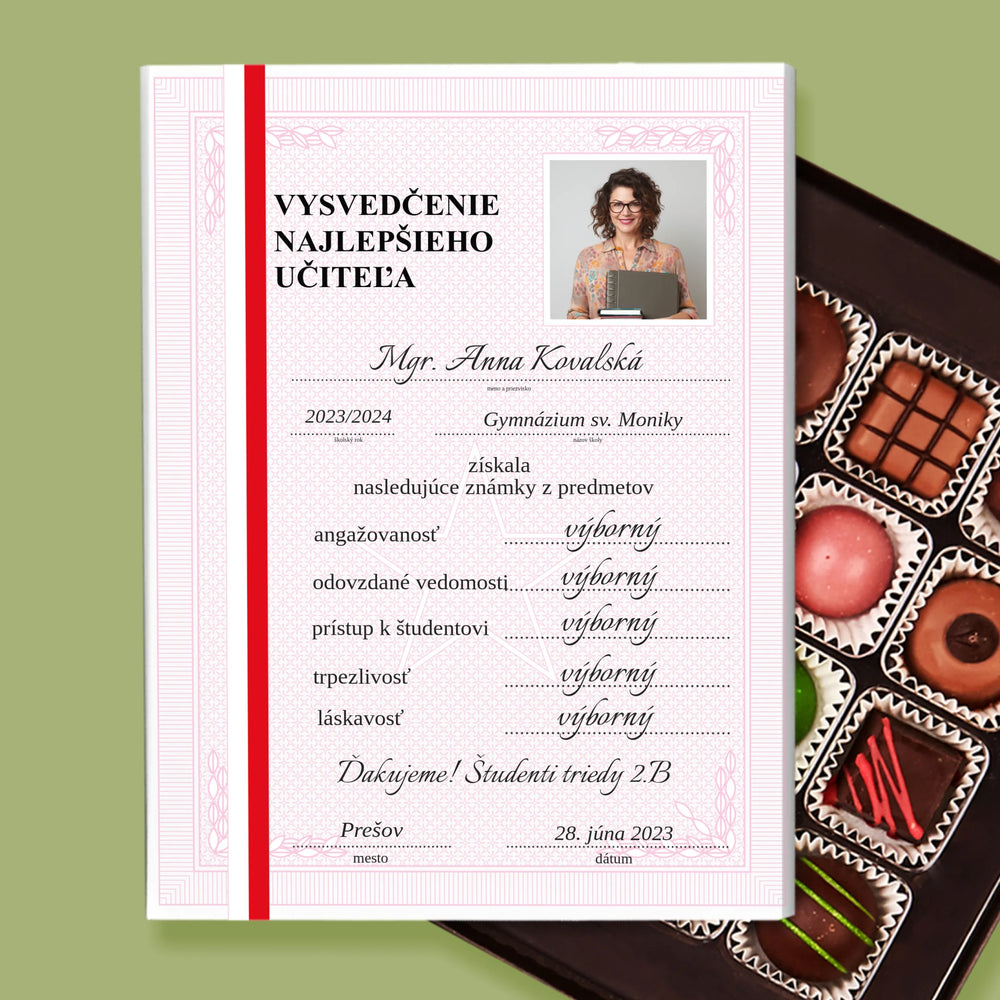 VYSVEDČENIE
NAJLEPŠIEHO
UČITEĽA
Mgr. Anna Kovalská
meno a priezvisko
2023/2024 Gymnázium sv. Moniky
školský rok názov školy
získala
nasledujúce známky z predmetov
angažovanosť výborný
odovzdané vedomosti výborný
prístup k študentovi výborný
trpezlivosť výborný
láskavosť výborný
Ďakujeme! Študenti triedy 2.B
Prešov 28. júna 2023
mesto dátum